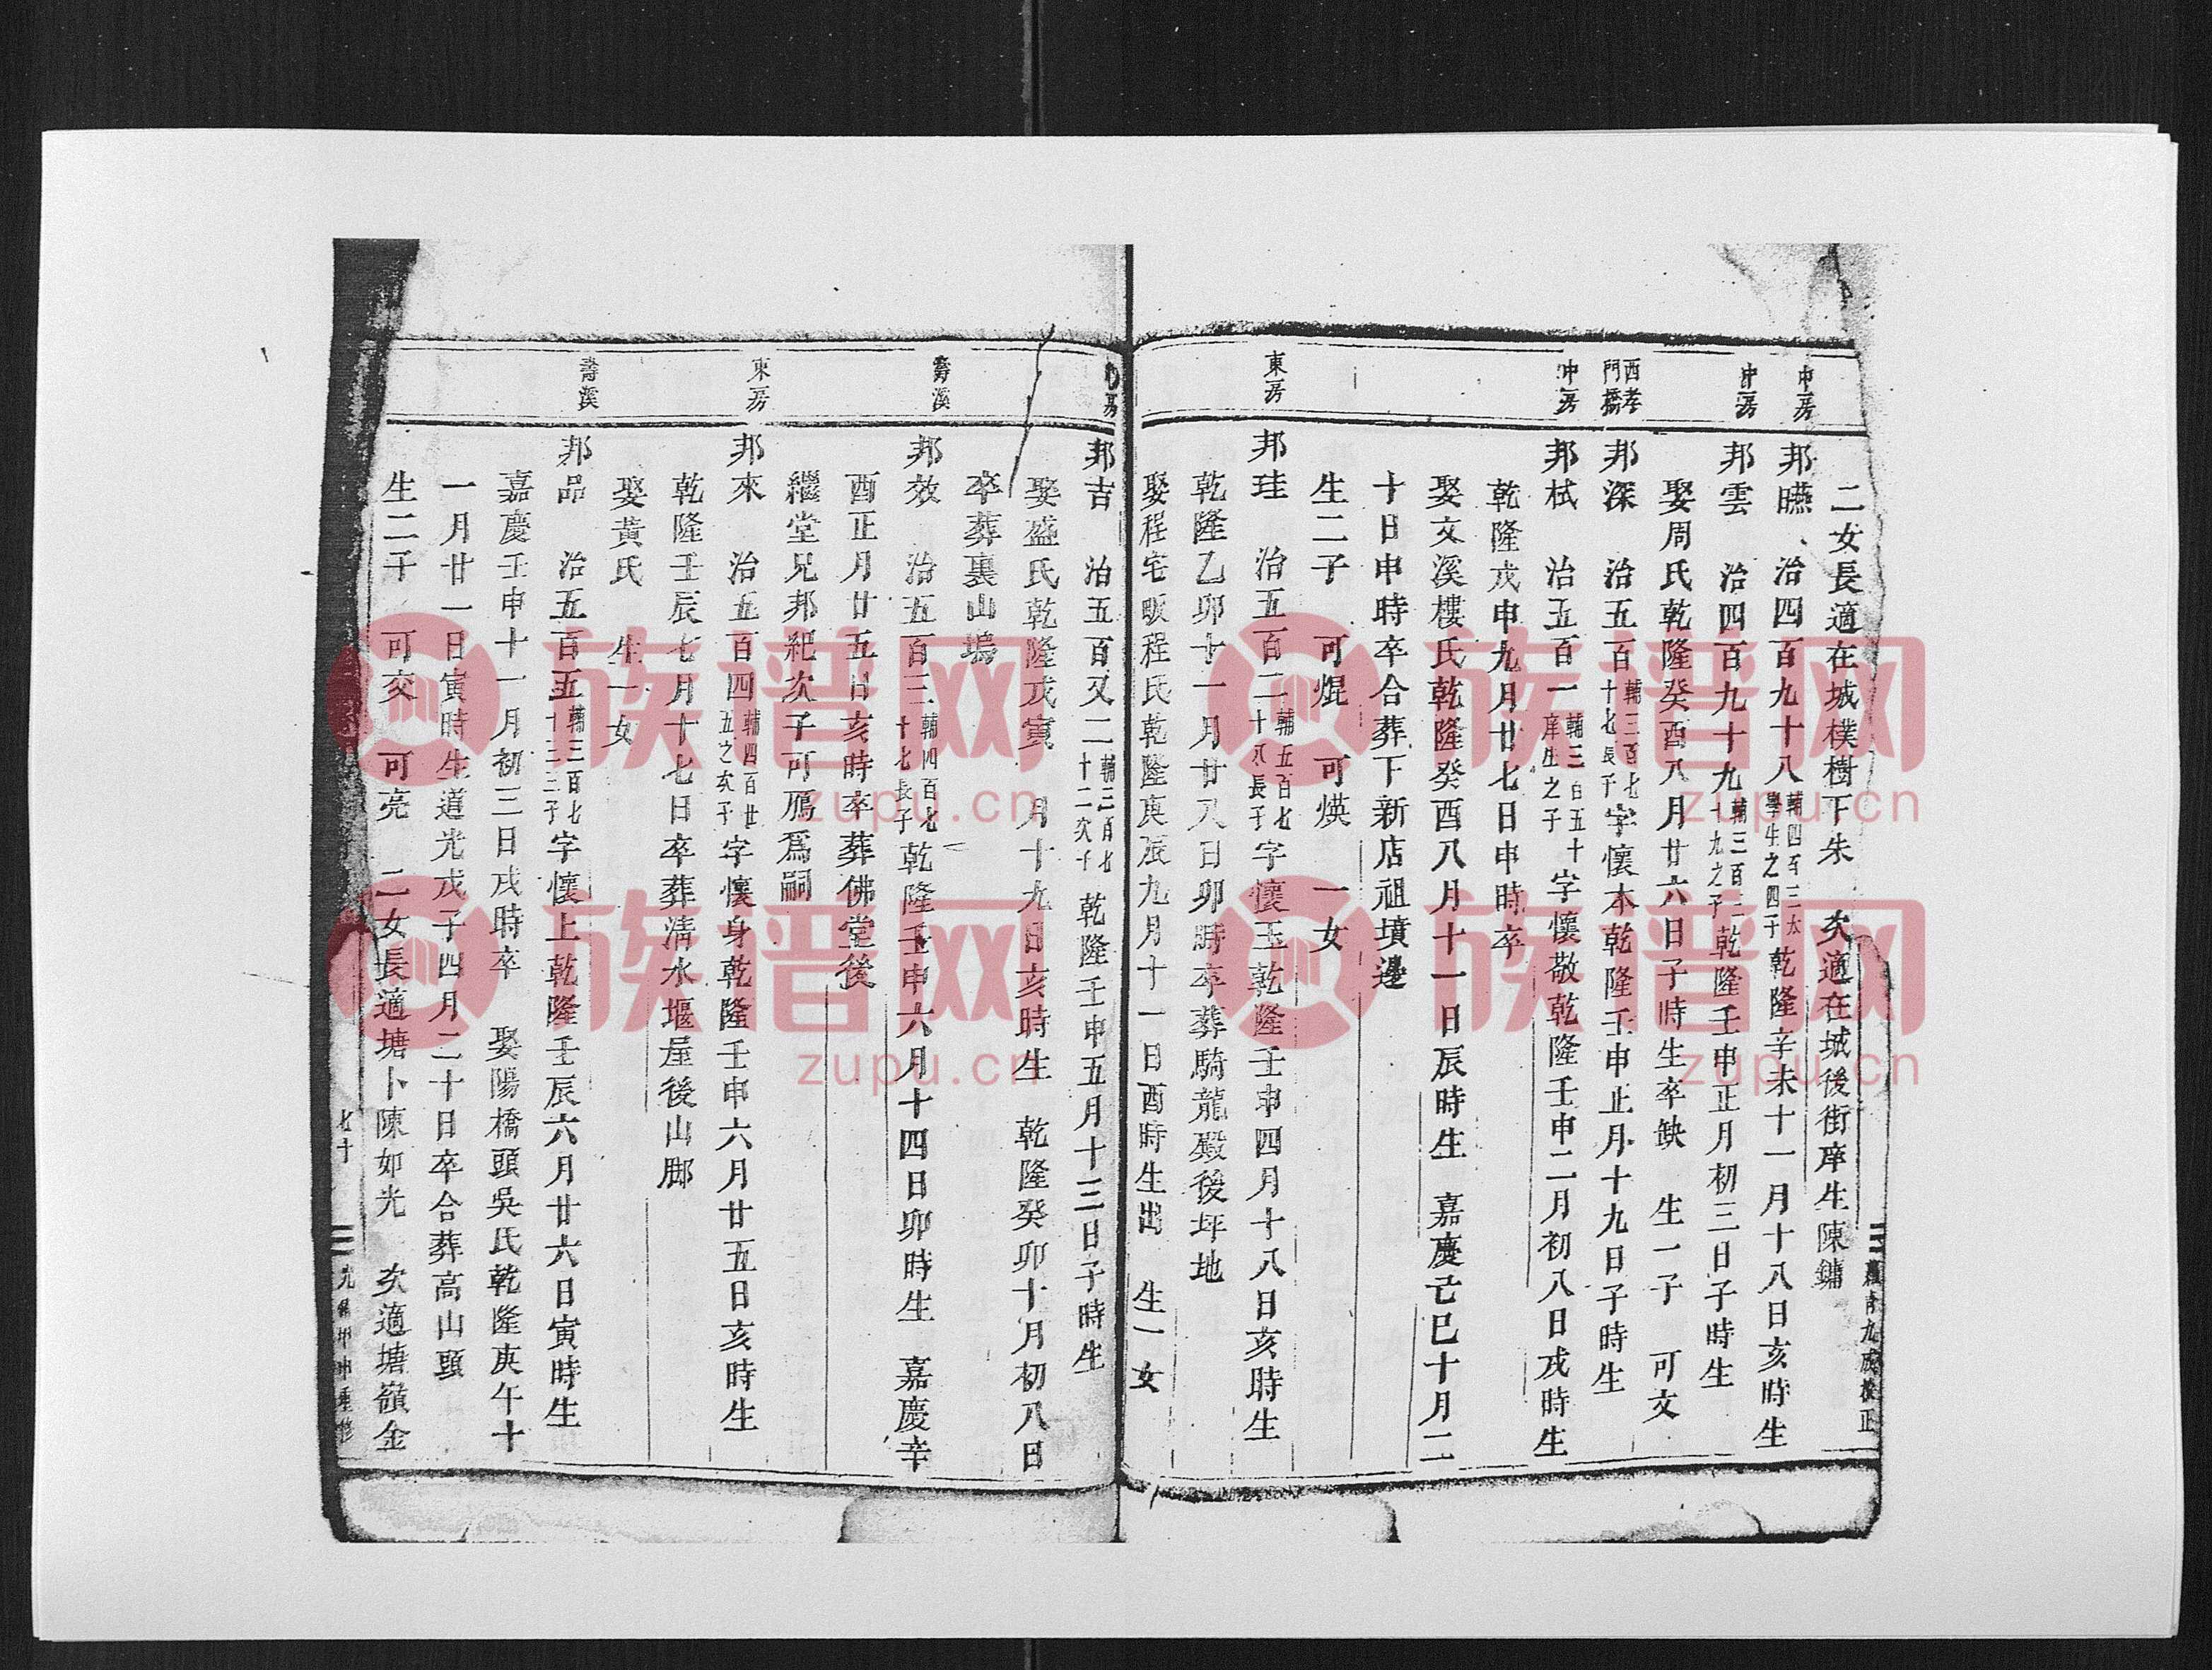 二女長適在城樸樹下朱 次適在城後街庠生陳鏞
中房
邦曣 治四百九十八輔四百三六學生之四子乾隆辛未十一月十八日亥時生
中房
邦雲 治四百九十九輔三百二十九之子乾隆壬申正月初三日子時生
娶周氏乾隆癸酉八月廿六日子時生卒缺 生一子 可文
西孝門橋
邦深 治五百輔三百七十七長子字懷本乾隆壬申正月十九日子時生
中房
邦栻 治五百一輔三百五十庠生之子字懷敬乾隆壬申二月初八日戌時生
乾隆戊申九月廿七日申時卒
娶文溪樓氏乾隆癸酉八月十一日辰時生 嘉慶己巳十月二
十日申時卒合葬下新店祖墳邊
生二子 可焜 可煐 一女
東房
邦珪 治五百二輔五百七十八長子字懷玉乾隆壬申四月十八日亥時生
乾隆乙卯十一月廿八日卯時卒葬騎龍殿後坪地
娶程宅畈程氏乾隆庚辰九月十一日酉時生出 生一女
邦吉 治五百又二輔三百七十二次子乾隆壬申五月十三日子時生
娶盛氏乾隆戊寅 月十九日亥時生 乾隆癸卯十月初八日
卒葬裏山塢
壽溪
邦效 治五百三輔四百七十七長子乾隆壬申六月十四日卯時生 嘉慶辛
酉正月廿五日亥時卒葬佛堂後
繼堂兄邦紀次子可鴈爲嗣
東房
邦來 治五百四輔四百廿五之次子字懷身乾隆壬申六月廿五日亥時生
乾隆壬辰七月十七日卒葬淸水堰屋後山脚
娶黃氏 生一女
壽溪
邦品 治五百五輔三百七十二三子字懷上乾隆壬辰六月廿六日寅時生
嘉慶壬申十一月初三日戌時卒 娶陽橋頭吳氏乾隆庚午十
一月廿一日寅時生道光戊子四月二十日卒合葬高山頭
生二子 可交 可亮 二女長適塘卜陳如光 次適塘嶺金
七十
光緒甲申重修
族谱网
zupu.cn
族谱网
zupu.cn
族谱网
zupu.cn
族谱网
zupu.cn